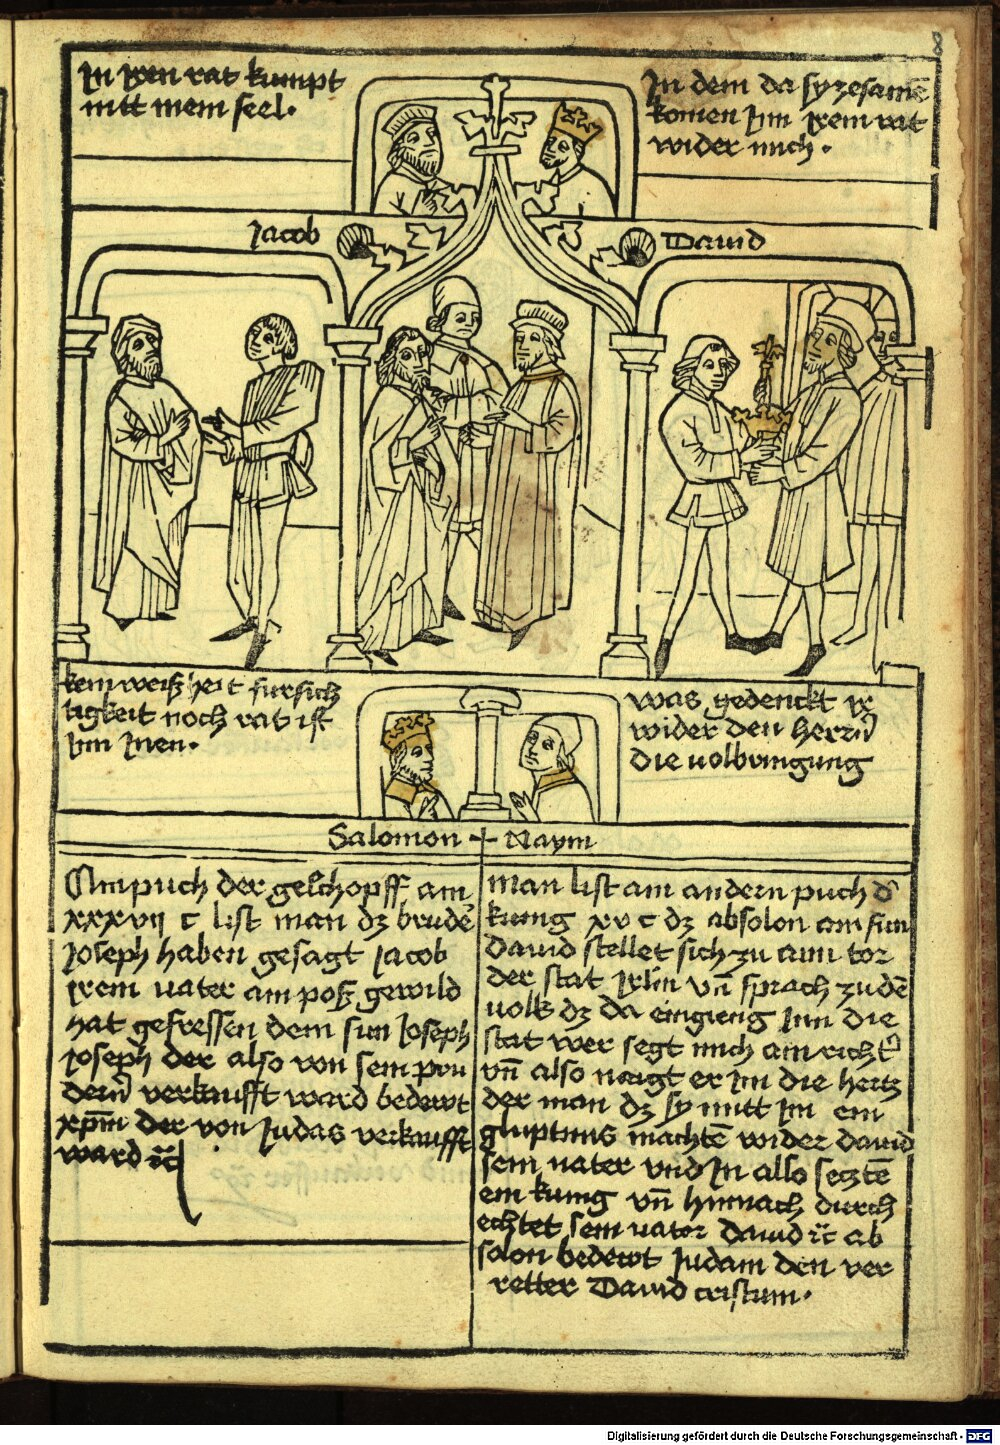 In iren rat kumpt
nitt mein seel.
In dem da sy zesamē
komen Inn irem rat
wider mich.
Jacob
Dauid
kein weißheit fursich
tigkeit noch rat ist
Inn Inen.
was gedenckt ir
wider den herrn
die uolbringung
Salomon Naym
Am puch der geschopff am
xxxvij c list man dz brude
Joseph haben gesagt Jacob
irem uater ain poß gewild
hat gefressen dein sun Joseph
Joseph der also von sein pru
dern verkaufft ward bedewt
xpm der von Judas verkaufft
ward
Man list am andern puch d
kunig xv c dz absolon ain sun
Dauid stellet sich zu aim tor
der stat Irlm vn̄ sprach zu dē
uolk dz da eingieng Inn die
stat wer setzt mich ain richt
vn̄ also naigt er im die hertz
der man dz sy mitt im ein
gluptnus machtē wider dauid
sein uater vnd In also setztē
ein kunig vn̄ hinnach durch
echtet sein uater dauid ab
solon bedewt Judam den ver
retter Dauid cristum.
8
Digitalisierung gefördert durch die Deutsche Forschungsgemeinschaft - DFG